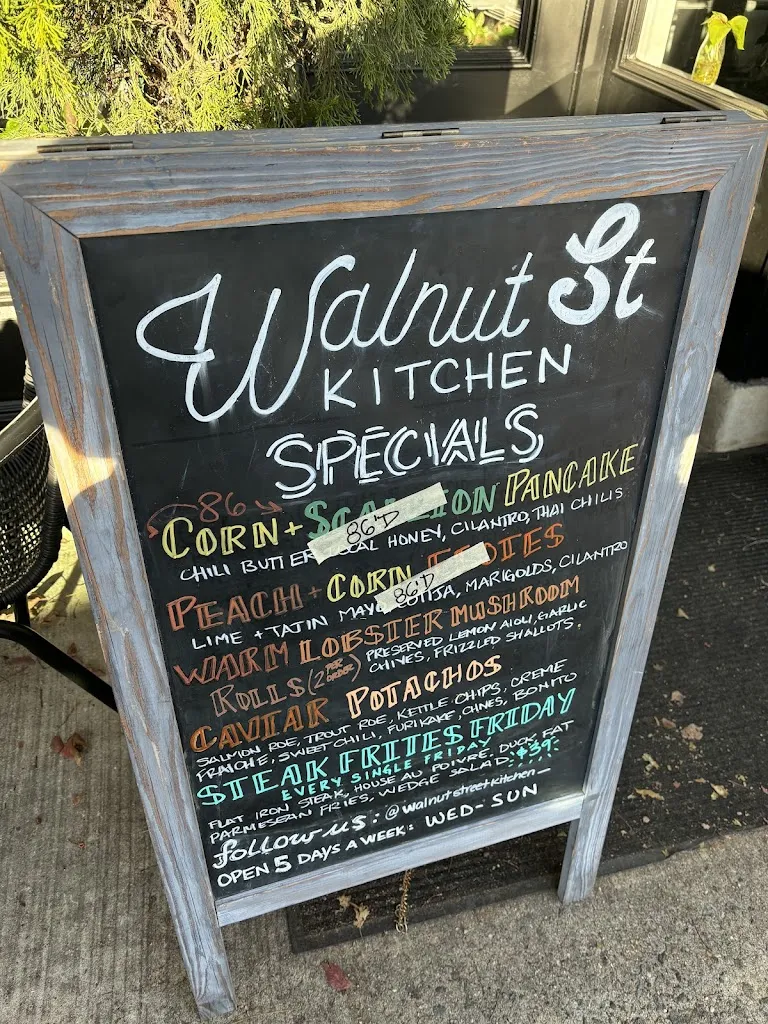 Walnut St
KITCHEN
SPECIALS
86
CORN + SCALLION PANCAKE
86'D
CHILI BUTTER, LOCAL HONEY, CILANTRO, THAI CHILIS
PEACH + CORN
86'D
LIME + TAJIN MAYO, COTIJA, MARIGOLDS, CILANTRO
WARM LOBSTER MUSHROOM
ROLLS (2 PER ORDER) PRESERVED LEMON AIOLI, GARLIC
CHIVES, FRIZZLED SHALLOTS.
CAVIAR POTACHOS
SALMON ROE, TROUT ROE, KETTLE CHIPS, CREME
FRAICHE, SWEET CHILI, FURIKAKE, CHIVES, BONITO
STEAK FRITES FRIDAY
EVERY SINGLE FRIDAY
$39
FLAT IRON STEAK, HOUSE AU POIVRE, DUCK FAT
PARMESEAN FRIES, WEDGE SALAD
follow us: @walnutstreetkitchen
OPEN 5 DAYS A WEEK: WED-SUN